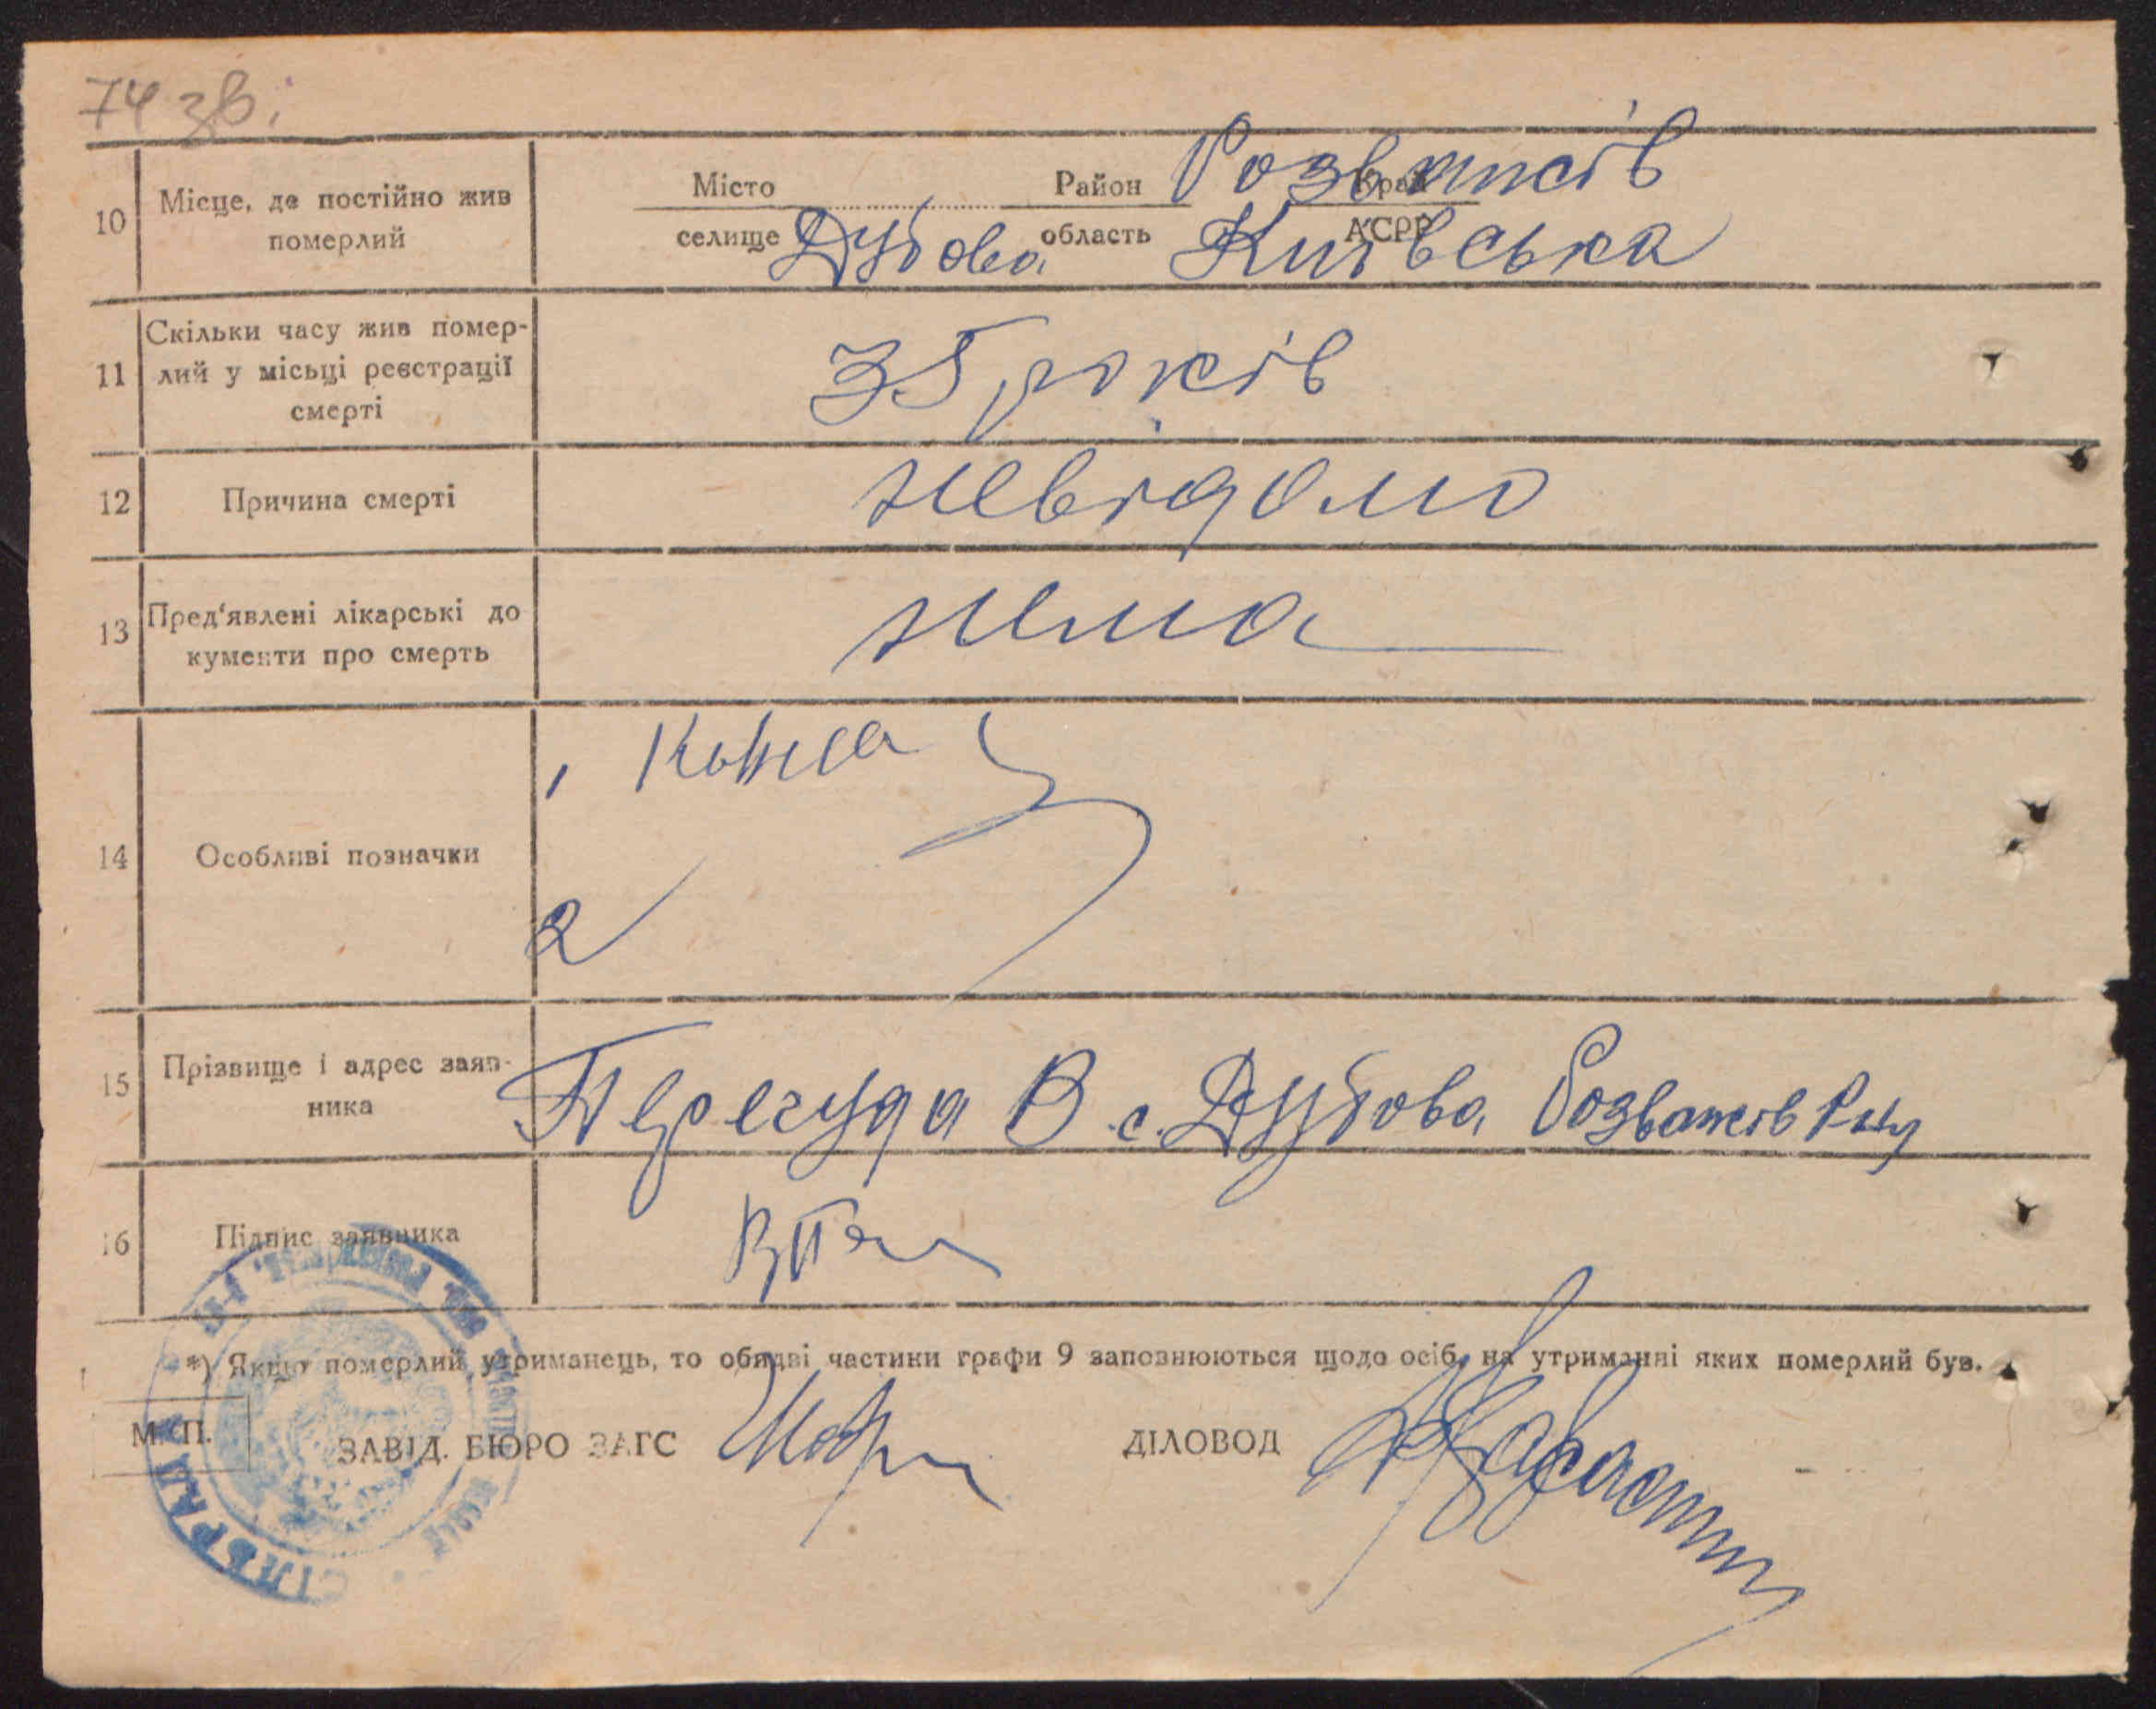 74 зв.
10 Місце, де постійно жив померлий
Місто Район Розважів Край
селище Дубова область Київська АСРР
11 Скільки часу жив помер-
лий у місьці реєстрації
смерті
35 років
12 Причина смерті невідомо
13 Пред'явлені лікарські до
кументи про смерть
нема
14 Особливі позначки
1
2
15 Прізвище і адрес заяв-
ника
Перегуда В с. Дубова Розважів Р-ну
16 Підпис заявника
*) Якщо померлий утриманець, то обидві частини графи 9 заповнюються щодо осіб, на утриманні яких померлий був.
М. П.
ЗАВІД. БЮРО ЗАГС ДІЛОВОД
СІЛЬРАДА